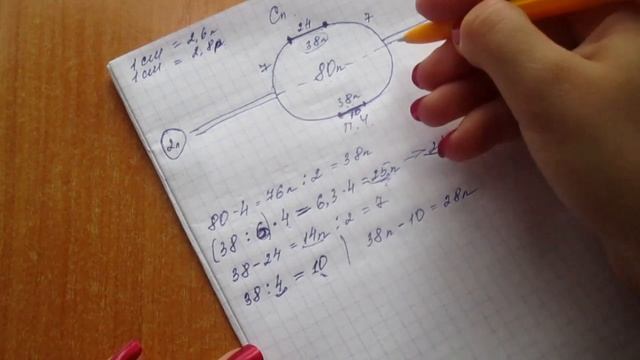 1 см = 2,6п
1 см = 2,8р
Сп
24
7
38п
7
80п
38п
10
П.Ч.
2п
80-4=76п:2=38п
(38:6)·4=6,3·4=25п=24
38-24=14п:2=7
38:4=10
38п-10=28п